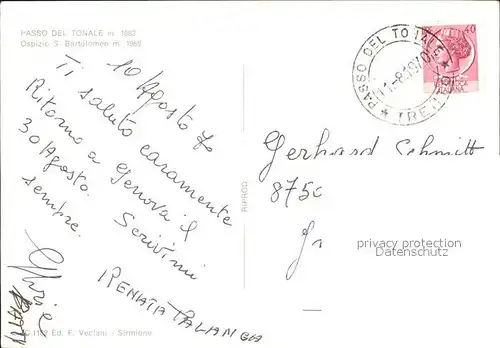 PASSO DEL TONALE m. 1883
Ospizio S. Bartolomeo m. 1969
10 Agosto 70
Ti saluto caramente
Ritorno a Genova il
30 Agosto. Scrivimi
sempre.
RENATA
RIPROD
Ed. F. Veclani - Sirmione
PASSO DEL TONALE
40
Gerhard Schmitt
875
privacy protection
Datenschutz